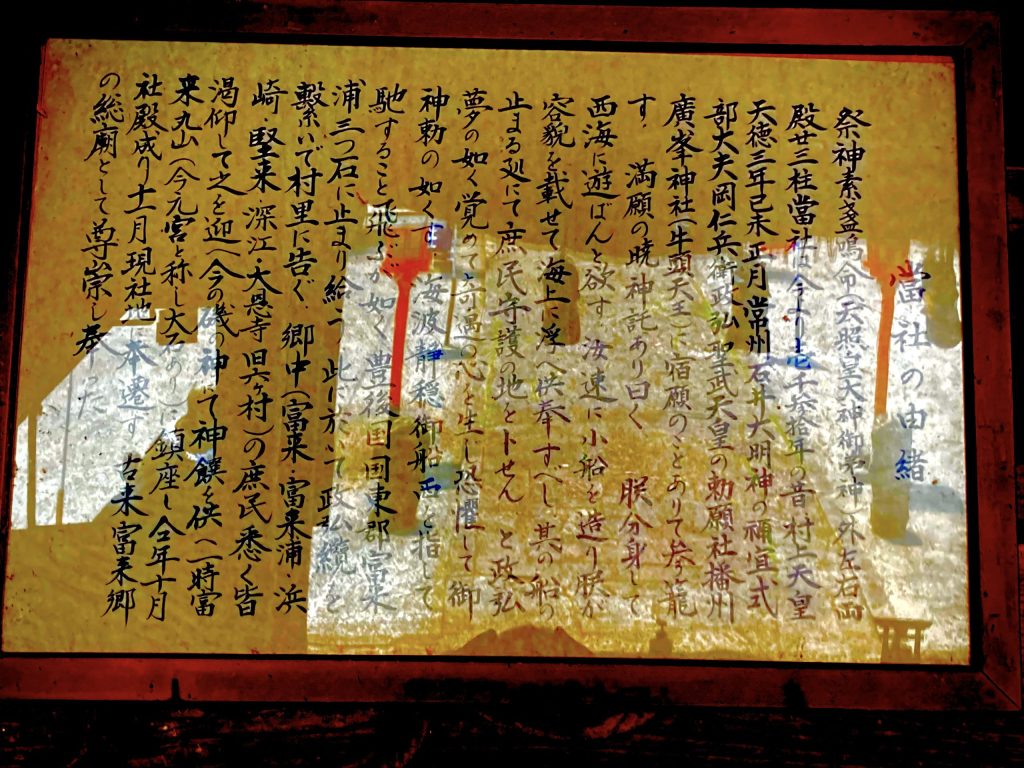 當社の由緒
祭神素盞嗚命(天照皇大神御弟神)外左右両
殿廿三柱當社は今より壱千参拾年の昔村上天皇
天徳三年己未正月常州石井大明神の禰宜式
部大夫岡仁兵衛政弘聖武天皇の勅願社播州
廣峯神社(牛頭天王)に宿願のことありて参籠
す、満願の暁神託あり曰く 朕分身して
西海に遊ばんと欲す汝速に小船を造り朕が
容貌を載せて海上に浮へ供奉すへし其の船の
止まる処にて庶民守護の地とトせん と政弘
夢の如く覚めて奇遇の心を生し恐懼して御
神勅の如くす 海波静穏御船西を指して
馳すること飛ぶが如く豊後国国東郡富来
浦三つ石に止まり給ふ、此に於いて政弘纜を
繫いで村里に告ぐ 郷中(富来・富来浦 浜
崎・堅来・深江・大恩寺旧六ヶ村)の庶民悉く皆
渇仰して之を迎へ今の磯の神にて神饌を供へ一時富
来丸山(今元宮と称し大石あり)に鎮座し仝年十月
社殿成り十一月現社地に奉遷す 古来富来郷
の総廟として尊崇し奉った